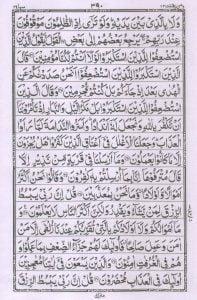 ۳۹۰
وَلَا بِالَّذِیْ بَیْنَ یَدَیْهِ وَلَوْ تَرٰۤی اِذِ الظّٰلِمُوْنَ مَوْقُوْفُوْنَ
عِنْدَ رَبِّهِمْ یَرْجِعُ بَعْضُهُمْ اِلٰی بَعْضِ الْقَوْلَ یَقُوْلُ الَّذِیْنَ
اسْتُضْعِفُوْا لِلَّذِیْنَ اسْتَكْبَرُوْا لَوْلَاۤ اَنْتُمْ لَكُنَّا مُؤْمِنِیْنَ قَالَ
الَّذِیْنَ اسْتَكْبَرُوْا لِلَّذِیْنَ اسْتُضْعِفُوْۤا اَنَحْنُ صَدَدْنٰكُمْ عَنِ
الْهُدٰی بَعْدَ اِذْ جَآءَكُمْ بَلْ كُنْتُمْ مُّجْرِمِیْنَ وَقَالَ الَّذِیْنَ
اسْتُضْعِفُوْا لِلَّذِیْنَ اسْتَكْبَرُوْا بَلْ مَكْرُ الَّیْلِ وَالنَّهَارِ اِذْ تَاْمُرُوْنَنَاۤ
اَنْ نَّكْفُرَ بِاللّٰهِ وَنَجْعَلَ لَهٗۤ اَنْدَادًا وَاَسَرُّوا النَّدَامَةَ لَمَّا رَاَوُا
الْعَذَابَ وَجَعَلْنَا الْاَغْلٰلَ فِیْۤ اَعْنَاقِ الَّذِیْنَ كَفَرُوْا هَلْ یُجْزَوْنَ
اِلَّا مَا كَانُوْا یَعْمَلُوْنَ وَمَاۤ اَرْسَلْنَا فِیْ قَرْیَةٍ مِّنْ نَّذِیْرٍ اِلَّا
قَالَ مُتْرَفُوْهَاۤ اِنَّا بِمَاۤ اُرْسِلْتُمْ بِهٖ كٰفِرُوْنَ وَقَالُوْا نَحْنُ
اَكْثَرُ اَمْوَالًا وَّاَوْلَادًا وَّمَا نَحْنُ بِمُعَذَّبِیْنَ قُلْ اِنَّ رَبِّیْ یَبْسُطُ
الرِّزْقَ لِمَنْ یَّشَآءُ وَیَقْدِرُ وَلٰكِنَّ اَكْثَرَ النَّاسِ لَا یَعْلَمُوْنَ وَمَاۤ
اَمْوَالُكُمْ وَلَاۤ اَوْلَادُكُمْ بِالَّتِیْ تُقَرِّبُكُمْ عِنْدَنَا زُلْفٰۤی اِلَّا مَنْ
اٰمَنَ وَعَمِلَ صَالِحًا فَاُولٰٓئِكَ لَهُمْ جَزَآءُ الضِّعْفِ بِمَا عَمِلُوْا وَ
هُمْ فِی الْغُرُفٰتِ اٰمِنُوْنَ وَالَّذِیْنَ یَسْعَوْنَ فِیْۤ اٰیٰتِنَا مُعٰجِزِیْنَ
اُولٰٓئِكَ فِی الْعَذَابِ مُحْضَرُوْنَ قُلْ اِنَّ رَبِّیْ یَبْسُطُ